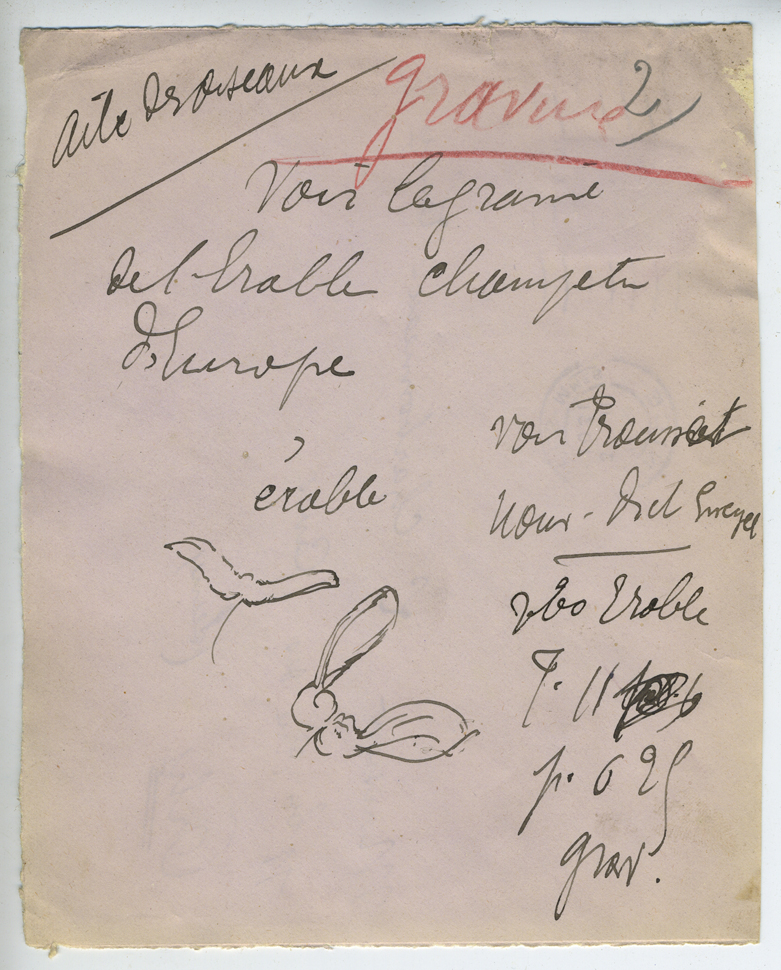 aile des oiseaux
gravure
2
Voir la graine
de l'Erable champetre
d'Europe
érable
voir Trousset
Nouv. Dict Encycl
vbo Erable
T. II
p. 625
grav.